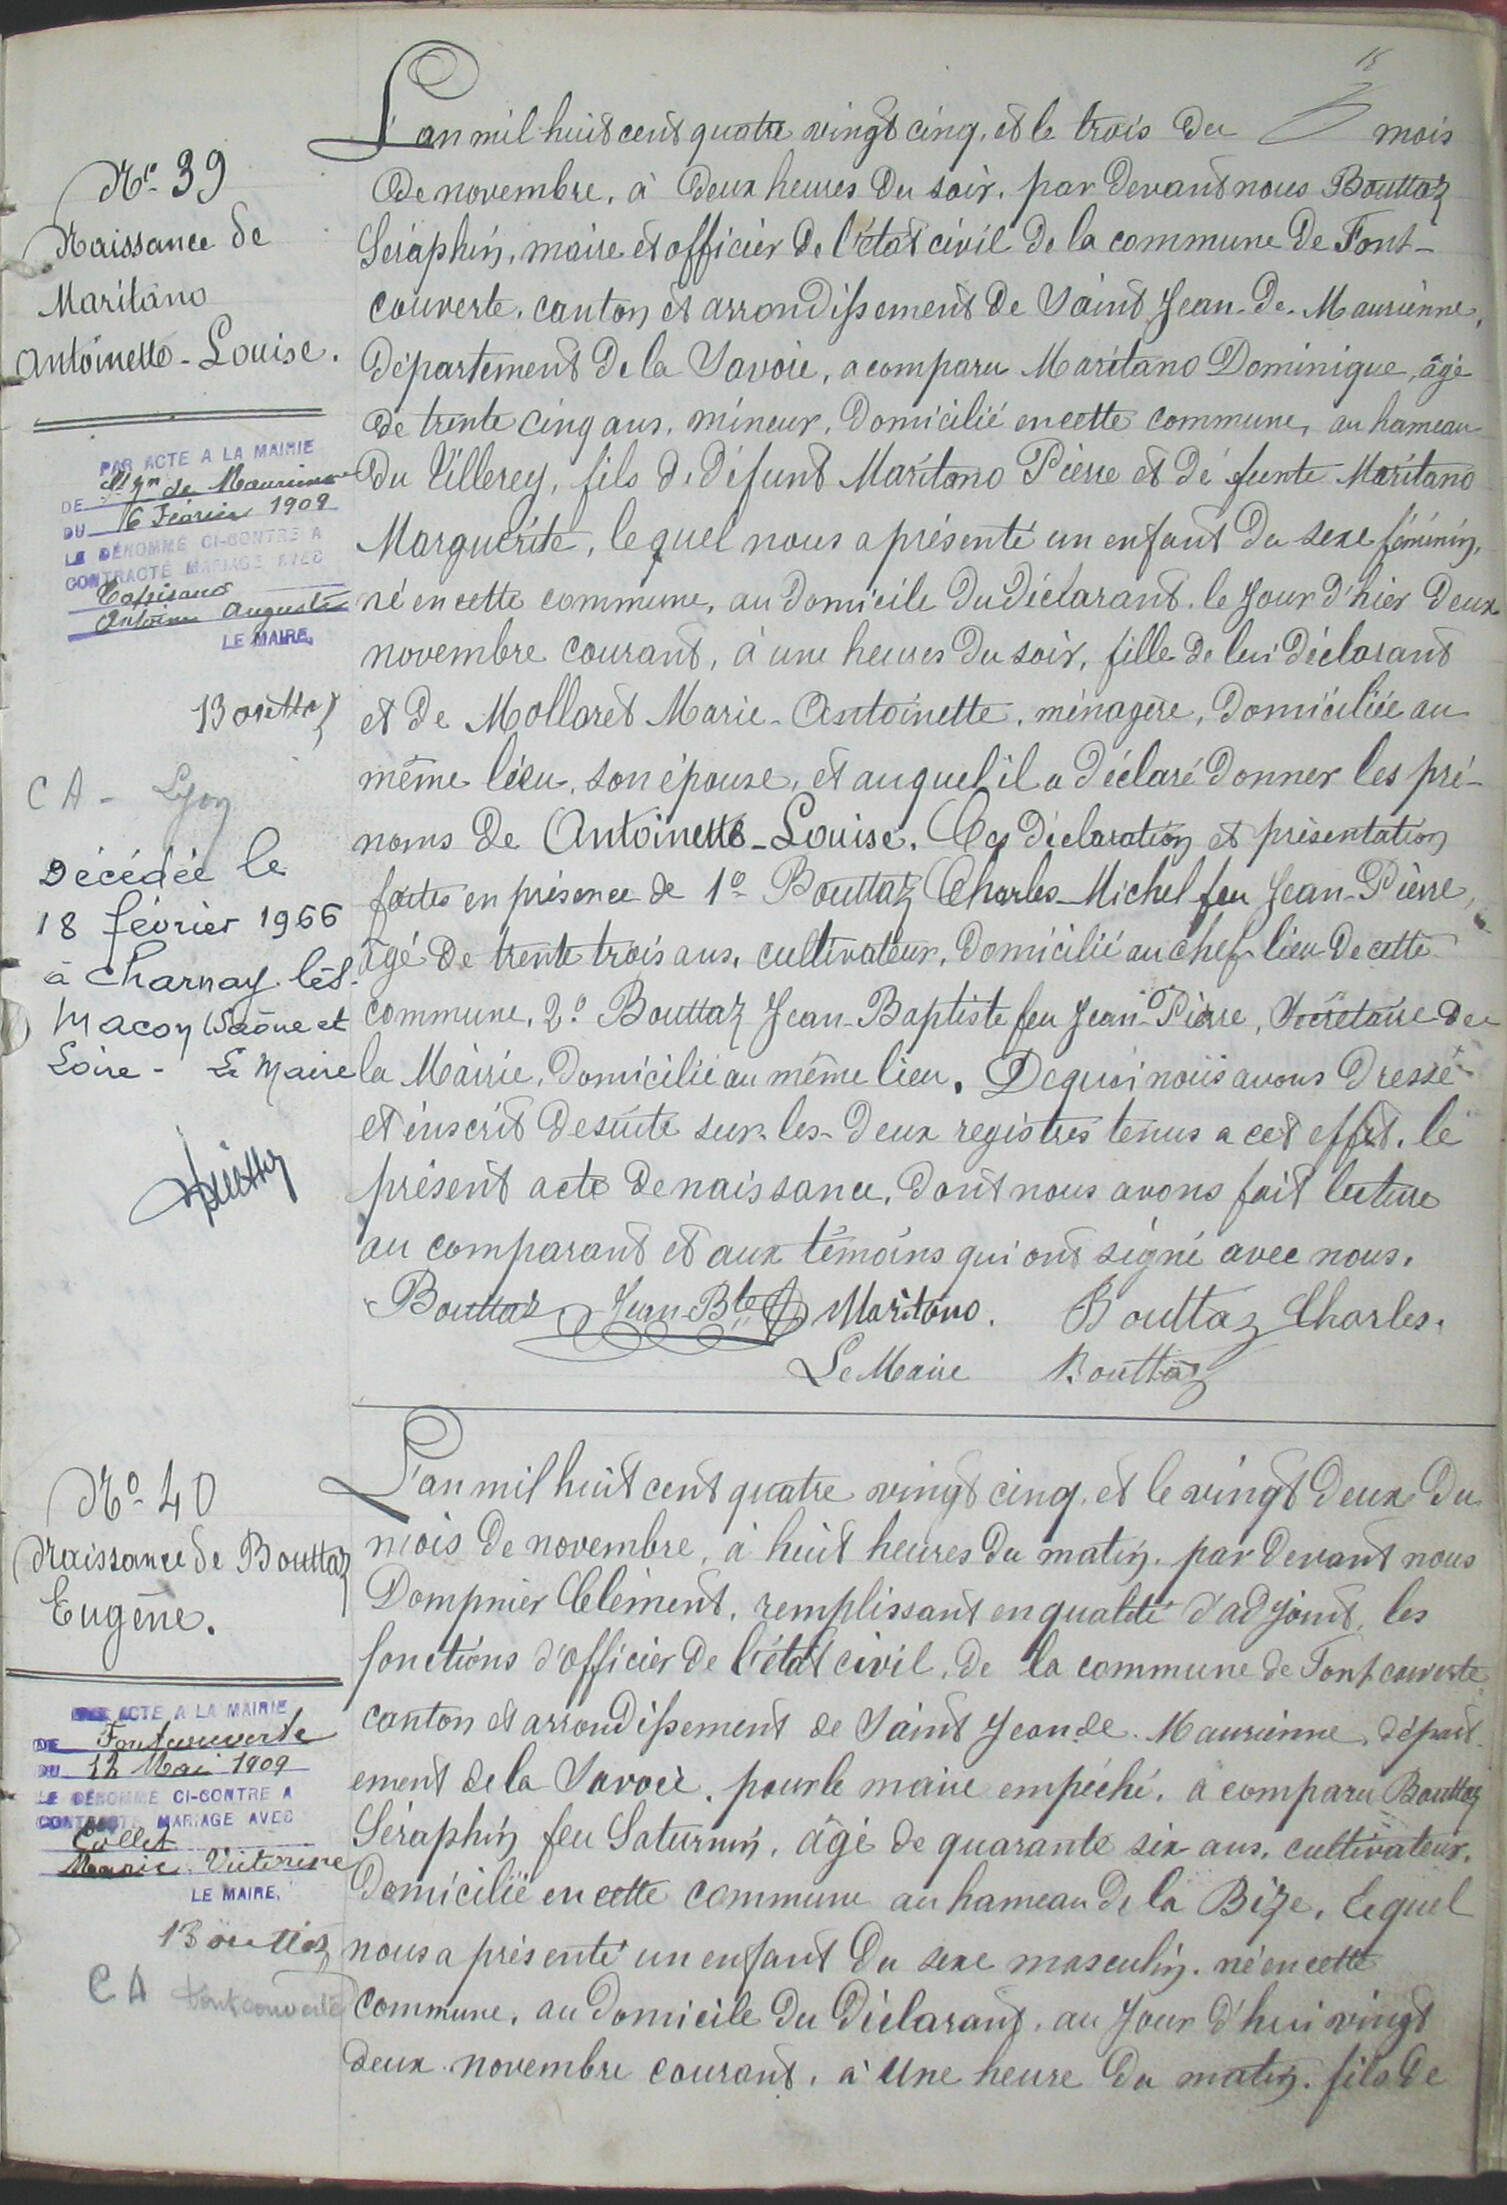 18
N° 39
Naissance de
Maritano
Antoinette-Louise.
PAR ACTE A LA MAIRIE
DE St Jn de Maurienne
DU 16 Février 1909
LE DÉNOMMÉ CI-CONTRE A
CONTRACTÉ MARIAGE AVEC
Antoine Auguste
LE MAIRE,
Bouttaz
CA - Lyon
Décédée le
18 février 1966
à Charnay-lès-
Macon (Saône et
Loire - Le Maire
L'an mil huit cent quatre vingt cinq, et le trois du mois
de novembre, à deux heures du soir, par devant nous Bouttaz
Séraphin, maire et officier de l'état civil de la commune de Font-
couverte, canton et arrondissement de Saint Jean-de-Maurienne,
département de la Savoie, a comparu Maritano Dominique, âgé
de trente cinq ans, mineur, domicilié en cette commune, au hameau
du Villerey, fils de défunt Maritano Pierre et dé funte Maritano
Marguerite, lequel nous a présenté un enfant du sexe féminin,
né en cette commune, au domicile du déclarant, le jour d'hier deux
novembre courant, à une heures du soir, fille de lui déclarant
et de Mollaret Marie-Antoinette, ménagère, domiciliée au
même lieu, son épouse, et auquel il a déclaré donner les pré-
noms de Antoinette-Louise. Ces déclaration et présentation
faites en présence de 1° Bouttaz Charles-Michel feu Jean-Pierre,
âgé de trente trois ans, cultivateur, domicilié au chef-lieu de cette
commune, 2° Bouttaz Jean-Baptiste feu Jean-Pierre, Secrétaire de
la Mairie, domicilié au même lieu. De quoi nous avons dressé
et inscrit de suite sur les deux registres tenus a cet effet, le
présent acte de naissance, dont nous avons fait lecture
au comparant et aux témoins qui ont signé avec nous.
Bouttaz Jean-Bte Maritano. Bouttaz Charles.
Le Maire Bouttaz
N° 40
Naissance de Bouttaz
Eugène.
PAR ACTE A LA MAIRIE
DE Fontcouverte
DU 12 Mai 1909
LE DÉNOMMÉ CI-CONTRE A
CONTRACTÉ MARIAGE AVEC
Collet
Marie Victorine
LE MAIRE,
Bouttaz
CA Fontcouverte
L'an mil huit cent quatre vingt cinq, et le vingt deux du
mois de novembre, à huit heures du matin, par devant nous
Dompnier Clément, remplissant en qualité d'adjoint, les
fonctions d'officier de l'état civil, de la commune de Fontcouverte
canton et arrondissement de Saint Jean de Maurienne, départ-
ement de la Savoie, pour le maire empêché, a comparu Bouttaz
Séraphin feu Saturnin, âgé de quarante six ans, cultivateur,
domicilié en cette commune au hameau de la Bize, lequel
nous a présenté un enfant du sexe masculin, né en cette
commune, au domicile du déclarant, au jour d'hui vingt
deux novembre courant, à une heure du matin, fils de